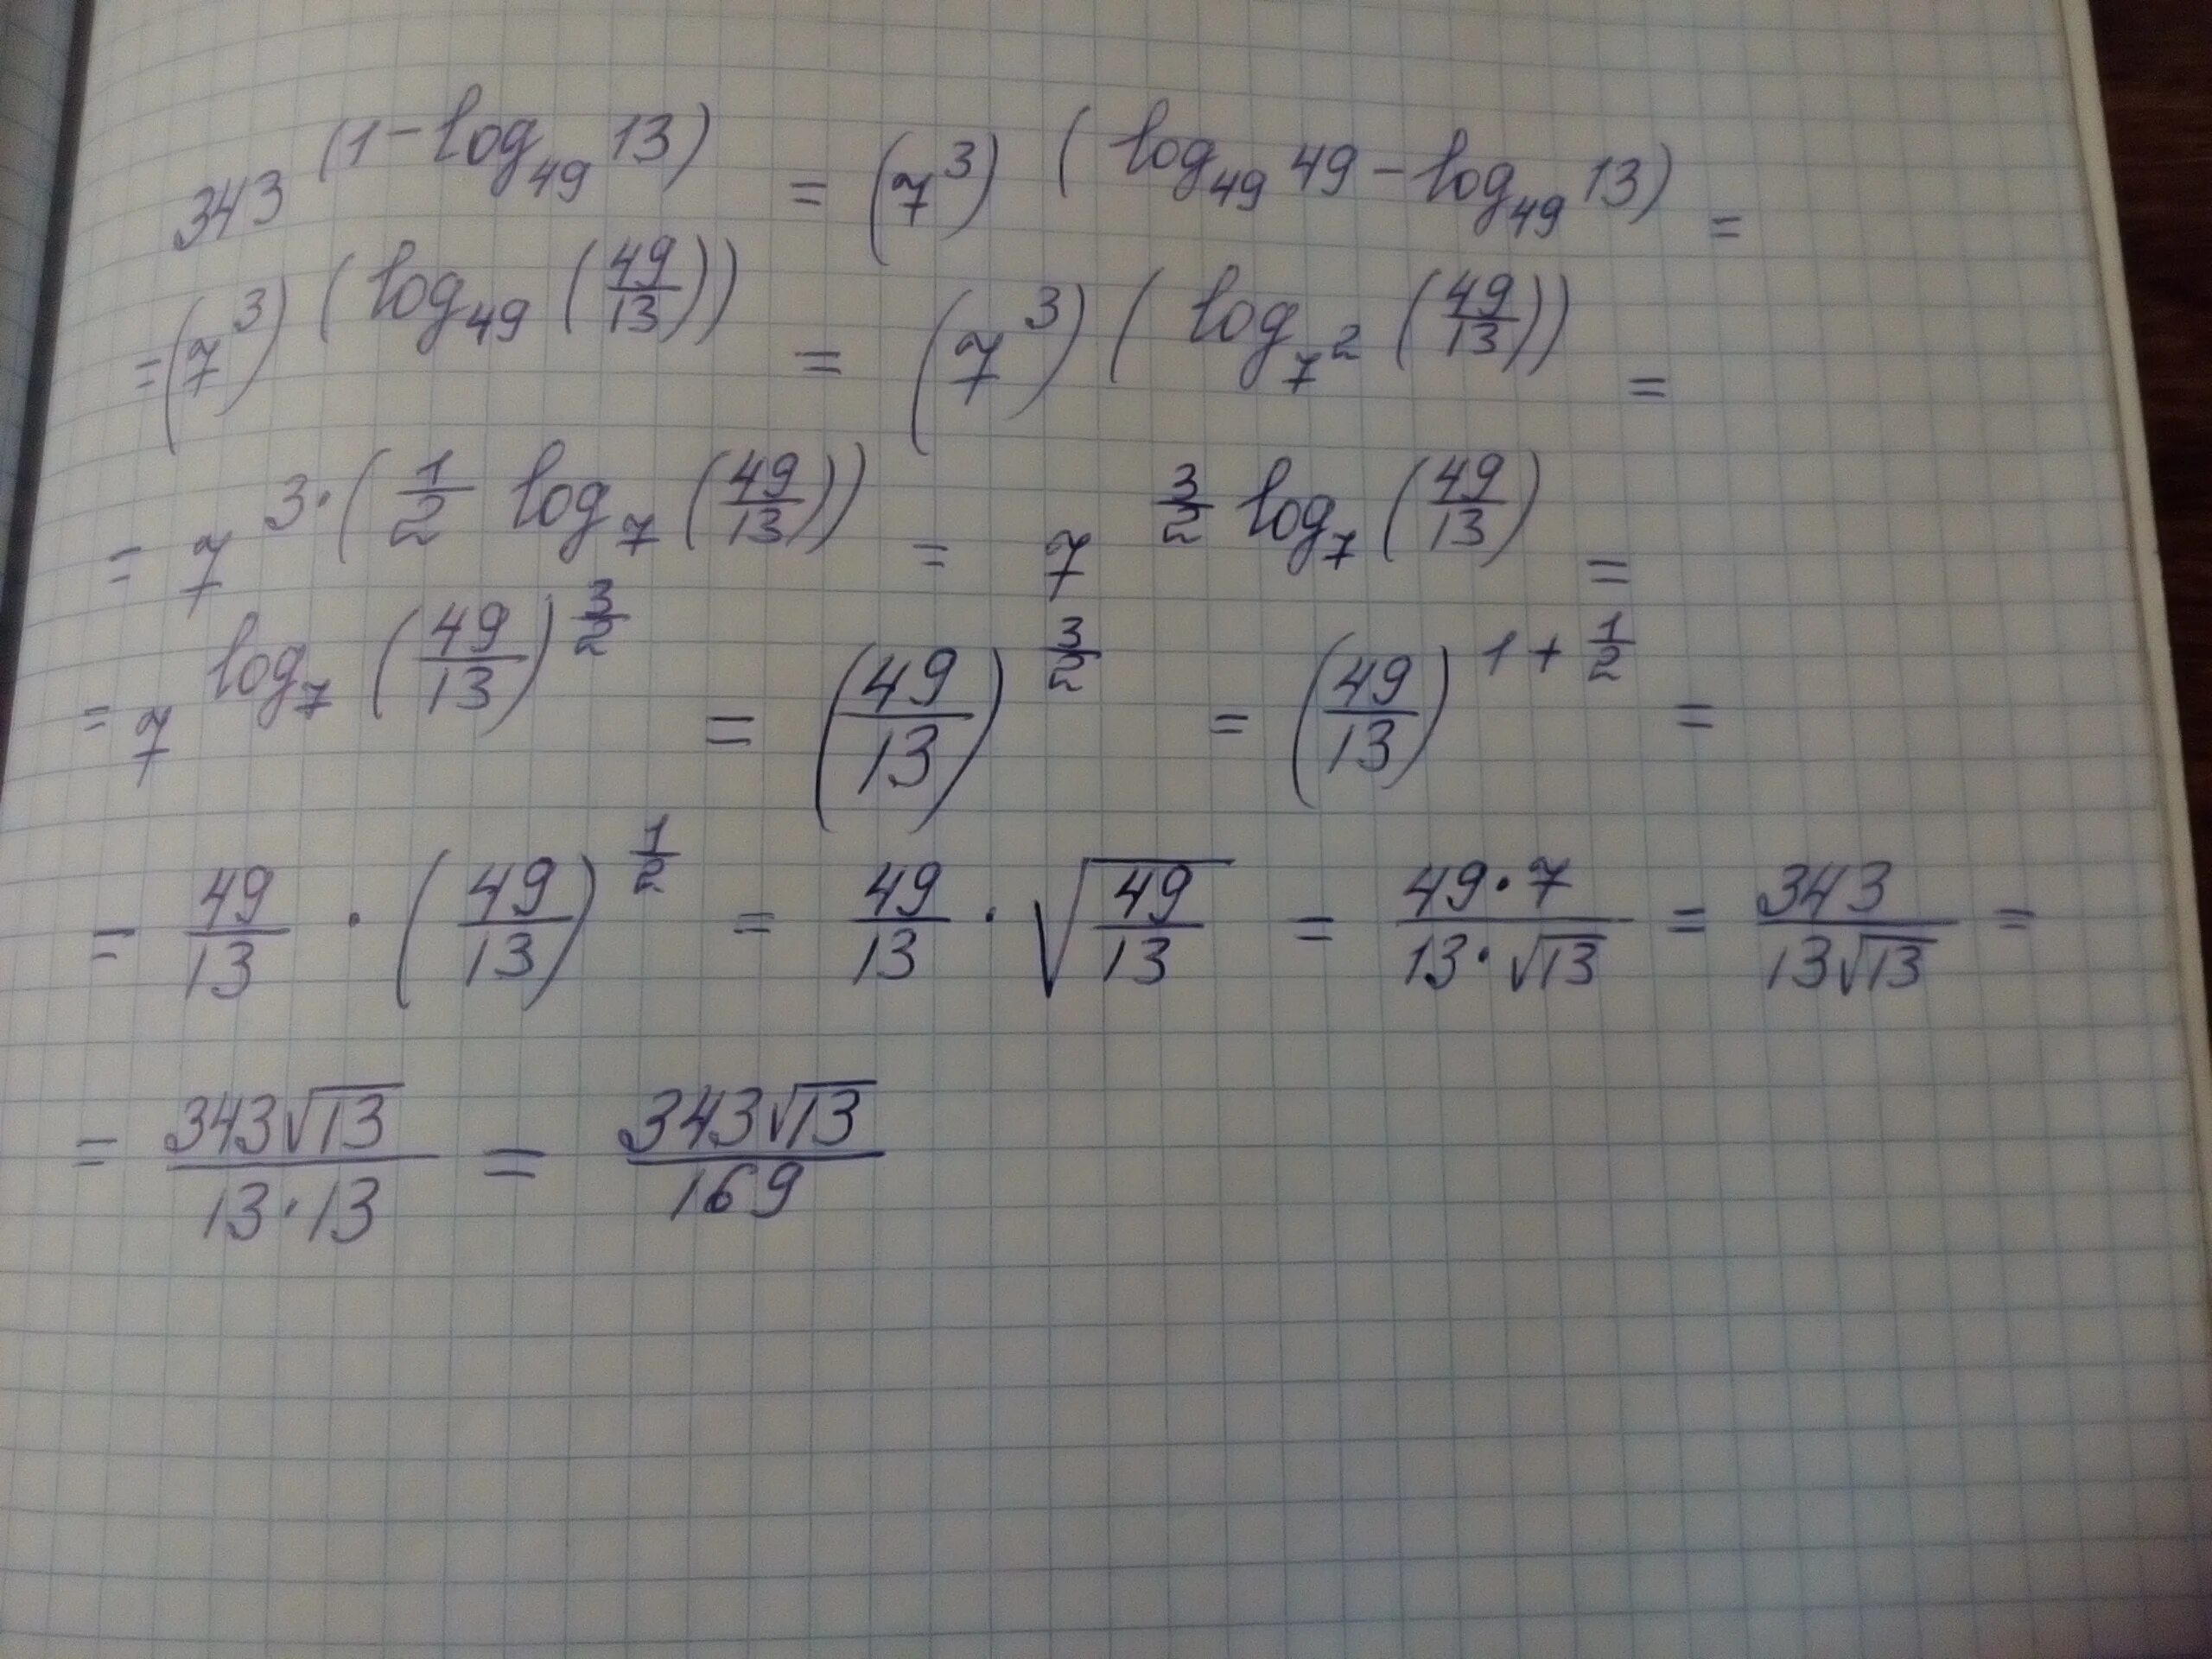 343^(1-log_49 13) = (7^3)^(log_49 49 - log_49 13) =
= (7^3)^(log_49 (49/13)) = (7^3)^(log_7^2 (49/13)) =
= 7^3·(1/2 log_7 (49/13)) = 7^3/2 log_7 (49/13) =
= 7^log_7 (49/13)^3/2 = (49/13)^3/2 = (49/13)^1+1/2 =
= 49/13 · (49/13)^1/2 = 49/13 · √(49/13) = 49·7/13·√13 = 343/13√13 =
= 343√13/13·13 = 343√13/169